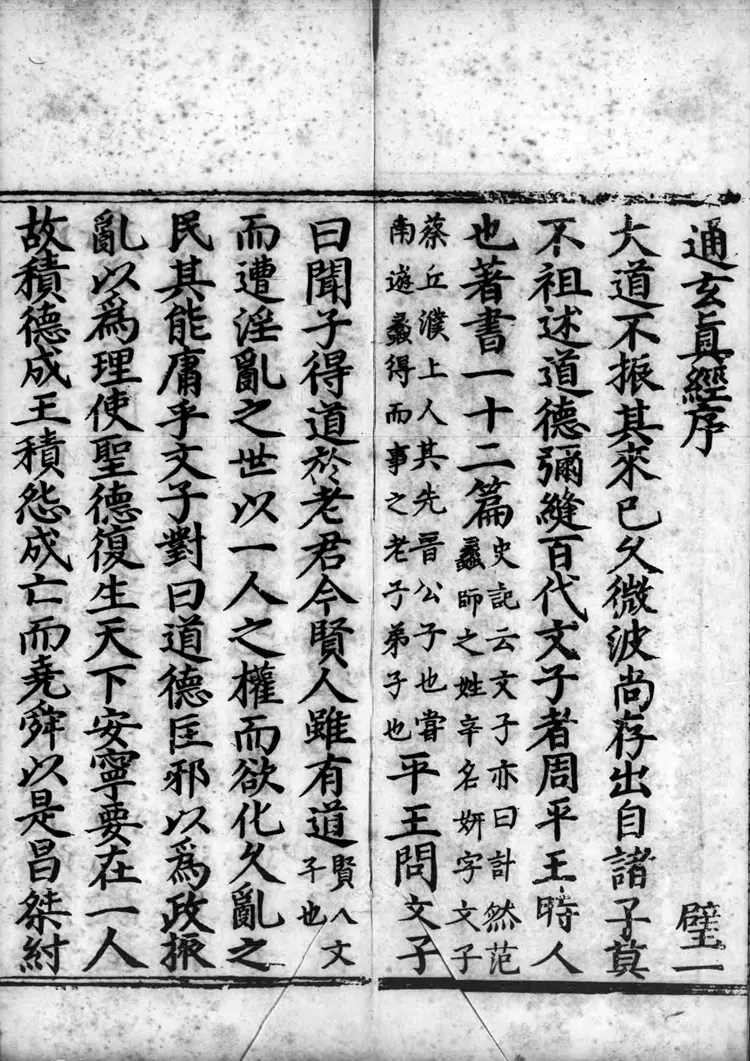 通玄眞經序 璧一
大道不振其來已久微波尚存出自諸子莫
不祖述道德彌縫百代文子者周平王時人
也著書一十二篇史記云文子亦曰計然范
蠡師之姓辛名妍字文子
蔡丘濮上人其先晉公子也嘗
南遊蠡得而事之老子弟子也平王問文子
曰聞子得道於老君今賢人雖有道賢人文
子也
而遭淫亂之世以一人之權而欲化久亂之
民其能庸乎文子對曰道德匡邪以爲政振
亂以爲理使聖德復生天下安寧要在一人
故積德成王積怨成亡而堯舜以是昌桀紂